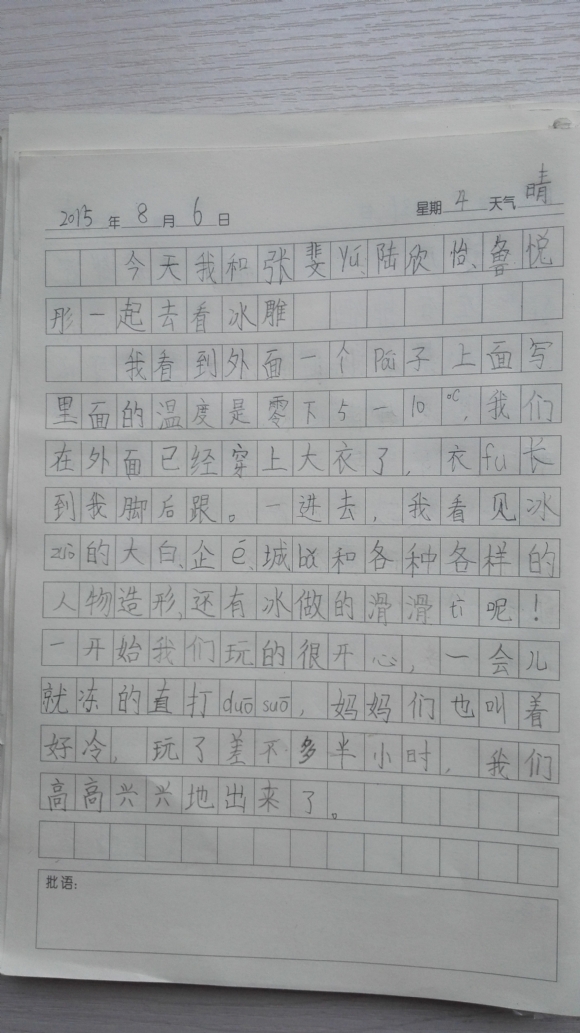 2015年8月6日 星期4天气晴
今天我和张斐Yú、陆欣怡、鲁悦
彤一起去看冰雕
我看到外面一个Pái子上面写
里面的温度是零下5一10℃,我们
在外面已经穿上大衣了,衣fu长
到我脚后跟。一进去,我看见冰
zuò的大白、企é、城bǎ和各种各样的
人物造形、还有冰做的滑滑tī呢!
一开始我们玩的很开心,一会儿
就冻的直打duō suō,妈妈们也叫着
好冷,玩了差不多半小时,我们
高高兴兴地出来了。
批语: